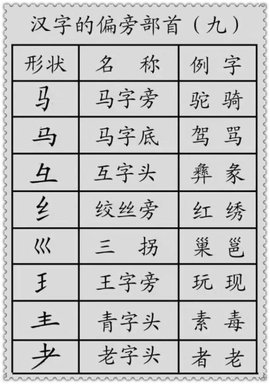 汉字的偏旁部首（九）
形状 名 称 例 字
马 马字旁 驼 骑
马 马字底 驾 骂
彑 互字头 彝 彖
纟 绞丝旁 红 绣
巛 三 拐 巢 邕
王 王字旁 玩 现
龶 青字头 素 毒
耂 老字头 者 老